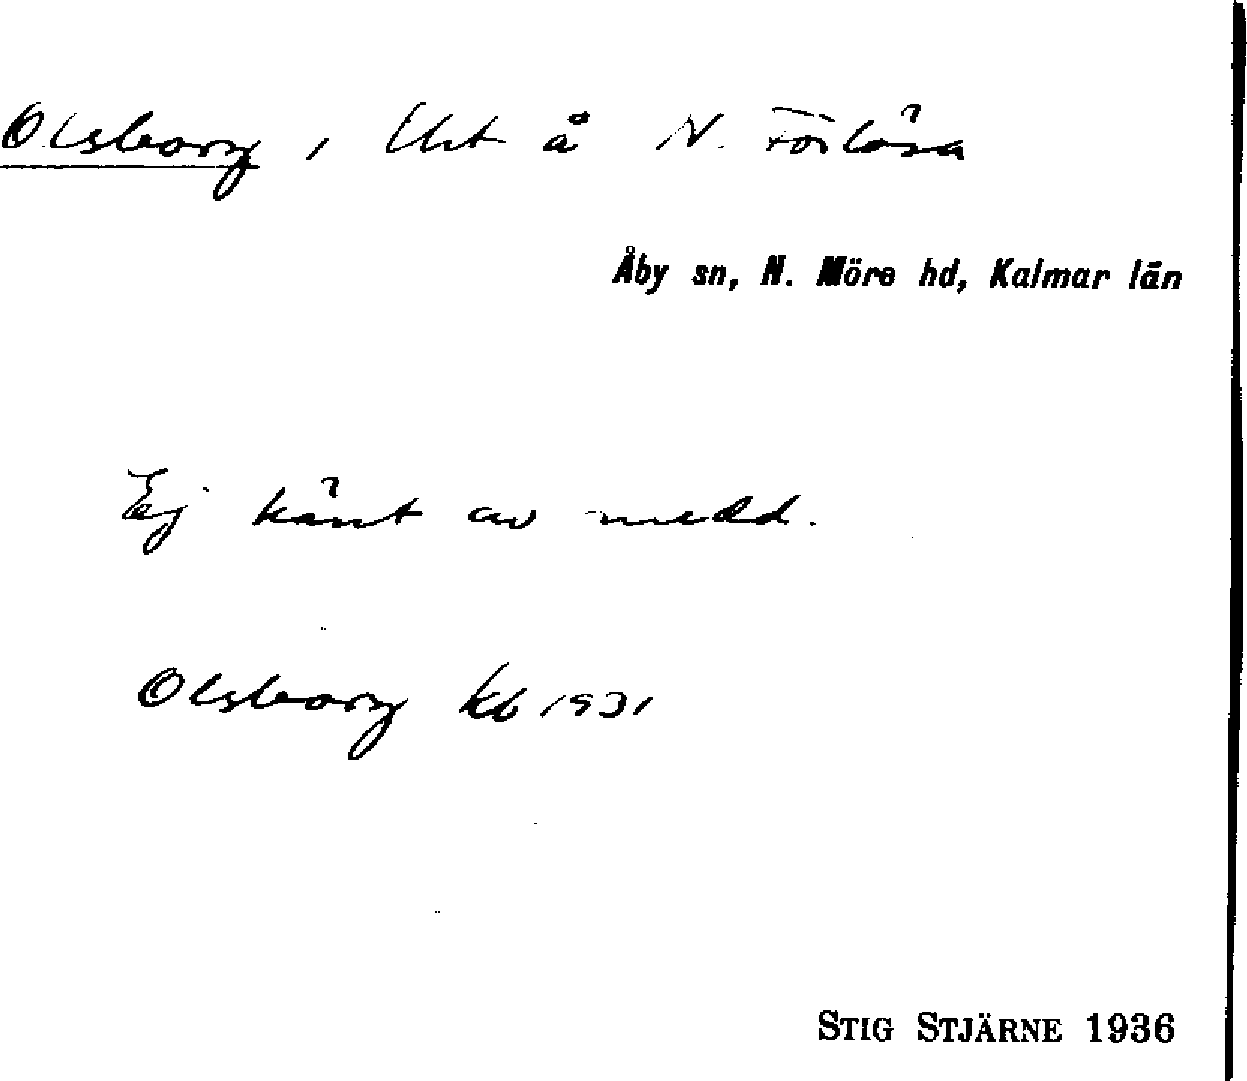 Olsborg, Uht å N. Förlösa
Åby sn, N. Möre hd, Kalmar län
Ej känt av medd.
Olsborg kb 1931
STIG STJÄRNE 1936